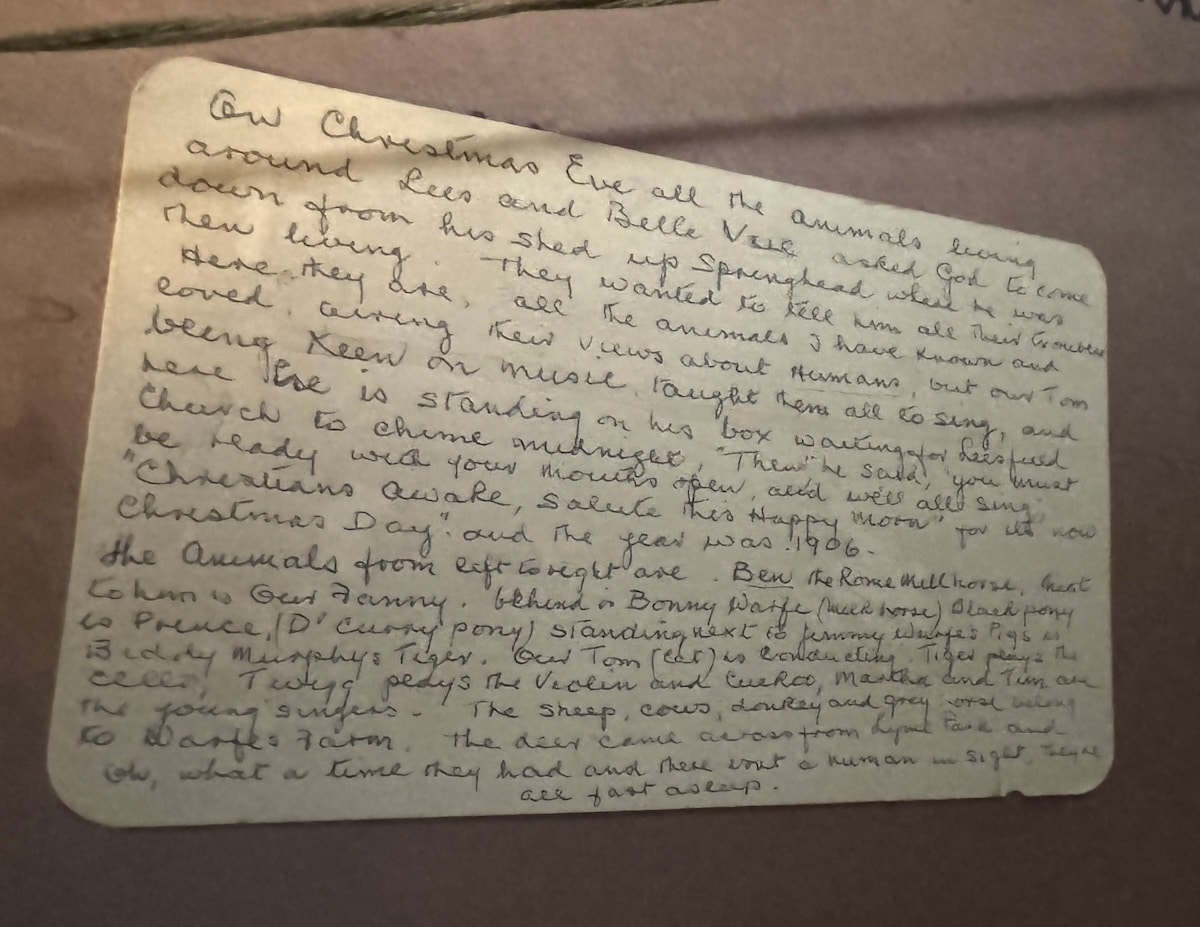 On Christmas Eve all the animals living
around Lees and Belle Vue asked God to come
down from his shed up Springhead where he was
then living. They wanted to tell him all their troubles
Here they are, all the animals I have known and
loved, airing their views about Humans, but our Tom
being Keen on music, taught them all to sing, and
here he is standing on his box waiting for Leesfield
Church to chime midnight, "Then" he said, you must
be ready with your mouths open, and we'll all sing
"Christians awake, salute this Happy morn" for its now
Christmas Day". and the year was 1906.
the Animals from left to right are. Ben the Rome Mill horse, next
to him is Our Fanny. behind is Bonny Warfe (milk horse) Black pony
is Prince, (D' Curry pony) standing next to Jimmy Warfe's Pigs is
Biddy Murphys Tiger. Our Tom (cat) is conducting. Tiger plays the
cello, Twigg plays the Violin and Cuckoo, Martha and Tim are
the young singers. The sheep, cows, donkey and grey horse belong
to Warfes Farm. the deer came across from Lyme Park and
Oh, what a time they had and there isnt a human in sight, they're
all fast asleep.